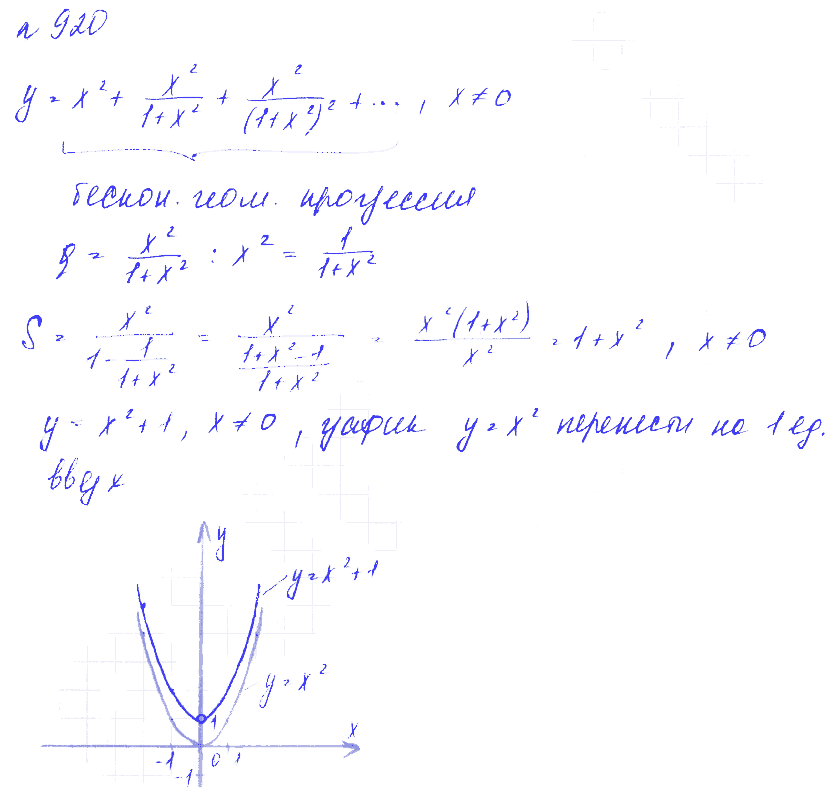 n 920
y = x² + x²/(1+x²) + x²/(1+x²)² + ... , x ≠ 0
бескон. геом. прогрессия
q = x²/(1+x²) : x² = 1/(1+x²)
S = x²/(1 - 1/(1+x²)) = x²/((1+x²-1)/(1+x²)) = x²(1+x²)/x² = 1+x² , x ≠ 0
y = x²+1, x ≠ 0 , график y = x² перенести на 1 ед.
вверх
y
y = x²+1
y = x²
1
x
-1 0 1
-1